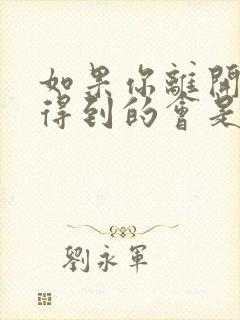 如果你離開
得到的會是
劉永軍